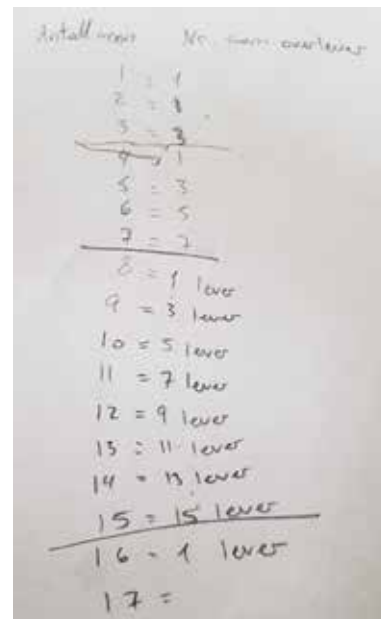 Antall menn Nr. som overlever
1 = 1
2 = 1
3 = 3
4 → 1
5 = 3
6 = 5
7 = 7
8 = 1 lever
9 = 3 lever
10 = 5 lever
11 = 7 lever
12 = 9 lever
13 = 11 lever
14 = 13 lever
15 = 15 lever
16 = 1 lever
17 =